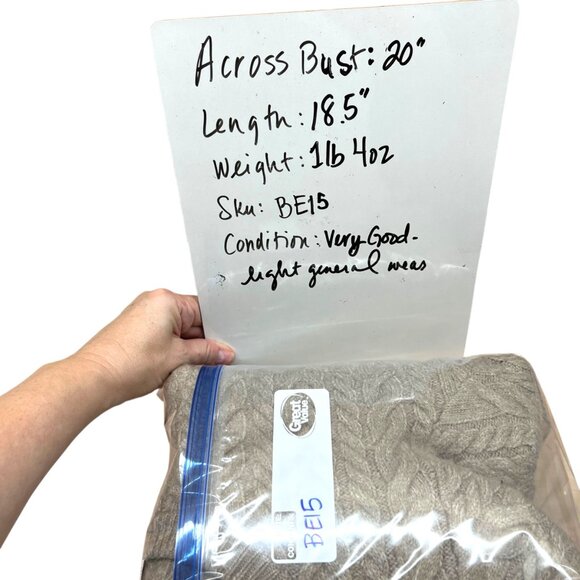 Across Bust: 20"
Length: 18.5"
Weight: 1lb 4oz
Sku: BE15
Condition: Very Good-
light general wear
Great
Value
BE15